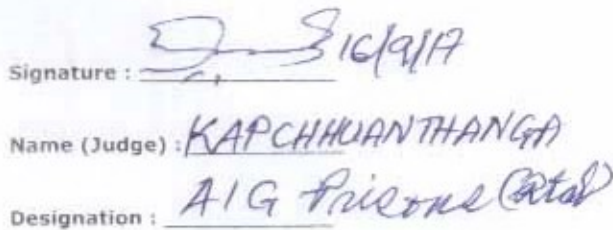 Signature : 16/9/17
Name (Judge) : KAPCHHUANTHANGA
Designation : AIG Prisons (Rtd)